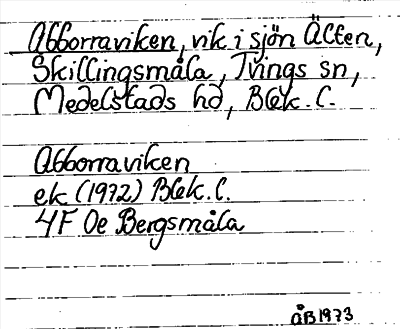 Abborraviken, vik i sjön Älten,
Skillingsmåla, Tvings sn,
Medelstads hd, Blek. L.
Abborraviken
ek (1972) Blek. L.
4F 0e Bergsmåla
ÅB 1973